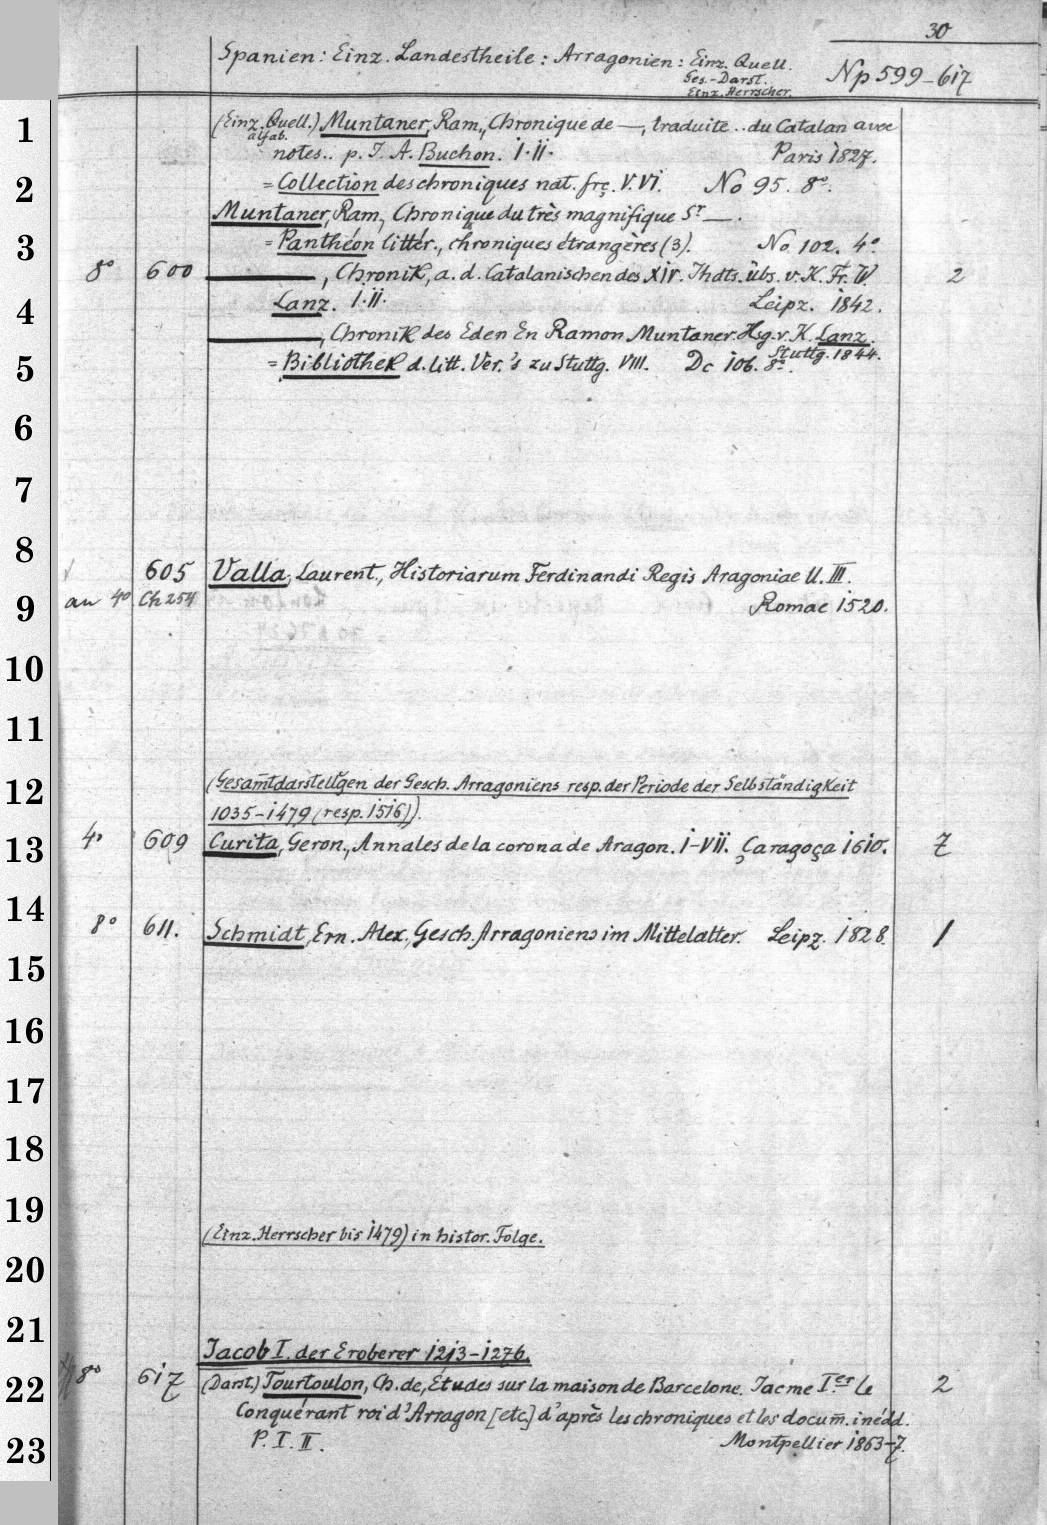 30
Spanien: Einz. Landestheile: Arragonien: Einz. Quell.
Ges.-Darst.
Einz. Herrscher.
Np 599-617
1
(Einz. Quell.) Muntaner, Ram., Chronique de —, traduite .. du Catalan avec
alfab.
notes.. p. J. A. Buchon. I.II. Paris 1827.
2
= Collection des chroniques nat. frç. V.VI. No 95. 8°.
Muntaner, Ram, Chronique du très magnifique Sr —.
3
= Panthéon littér., chroniques étrangères (3). No 102. 4°
8° 600 ———, Chronik, a. d. Catalanischen des XIV. Jhdts. übs. v. K. Fr. W. 2
4
Lanz. I.II. Leipz. 1842.
———, Chronik des Eden En Ramon Muntaner. Hsg. v. K. Lanz.
Stuttg. 1844.
5
= Bibliothek d. litt. Ver.'s zu Stuttg. VIII. Dc 106. 8°.
6
7
8
605 Valla, Laurent., Historiarum Ferdinandi Regis Aragoniae ll. III.
9
an 4° Ch 254 Romae 1520.
10
11
12
(Gesamtdarstellgen der Gesch. Arragoniens resp. der Periode der Selbständigkeit
1035-1479 (resp. 1516)).
13
4° 609 Curita, Geron., Annales de la corona de Aragon. I-VII. Çaragoça 1610. 7
14
8° 611. Schmidt, Ern. Alex., Gesch. Arragoniens im Mittelalter. Leipz. 1828. 1
15
16
17
18
19
(Einz. Herrscher bis 1479) in histor. Folge.
20
21
Jacob I. der Eroberer 1213-1276.
22
8° 617 (Darst.) Tourtoulon, Ch. de, Études sur la maison de Barcelone. Jacme Ier le 2
Conquérant roi d'Arragon [etc.] d'après les chroniques et les docum. inédd.
23
P. I. II. Montpellier 1863-7.